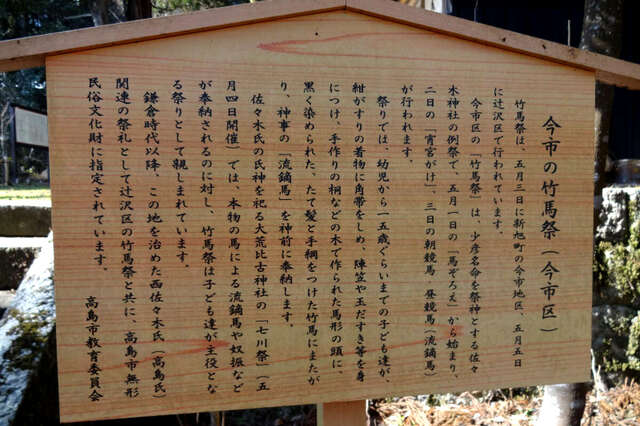 今市の竹馬祭（今市区）
竹馬祭は、五月三日に新旭町の今市地区、五月五日
に辻沢区で行われています。
今市区の「竹馬祭」は、少彦名命を祭神とする佐々
木神社の例祭で、五月一日の「馬ぞろえ」から始まり、
二日の「宵宮がけ」、三日の朝競馬　昼競馬（流鏑馬）
が行われます。
祭りでは、幼児から一五歳ぐらいまでの子ども達が、
紺がすりの着物に角帯をしめ、陣笠や玉だすき等を身
につけ、手作りの桐などの木で作られた馬形の頭に、
黒く染められた、たて髪と手綱をつけた竹馬にまたが
り、神事の「流鏑馬」を神前に奉納します。
佐々木氏の氏神を祀る大荒比古神社の「七川祭」（五
月四日開催）では、本物の馬による流鏑馬や奴振など
が奉納されるのに対し、竹馬祭は子ども達が主役とな
る祭りとして親しまれています。
鎌倉時代以降、この地を治めた西佐々木氏（高島氏）
関連の祭礼として辻沢区の竹馬祭と共に、高島市無形
民俗文化財に指定されています。
高島市教育委員会